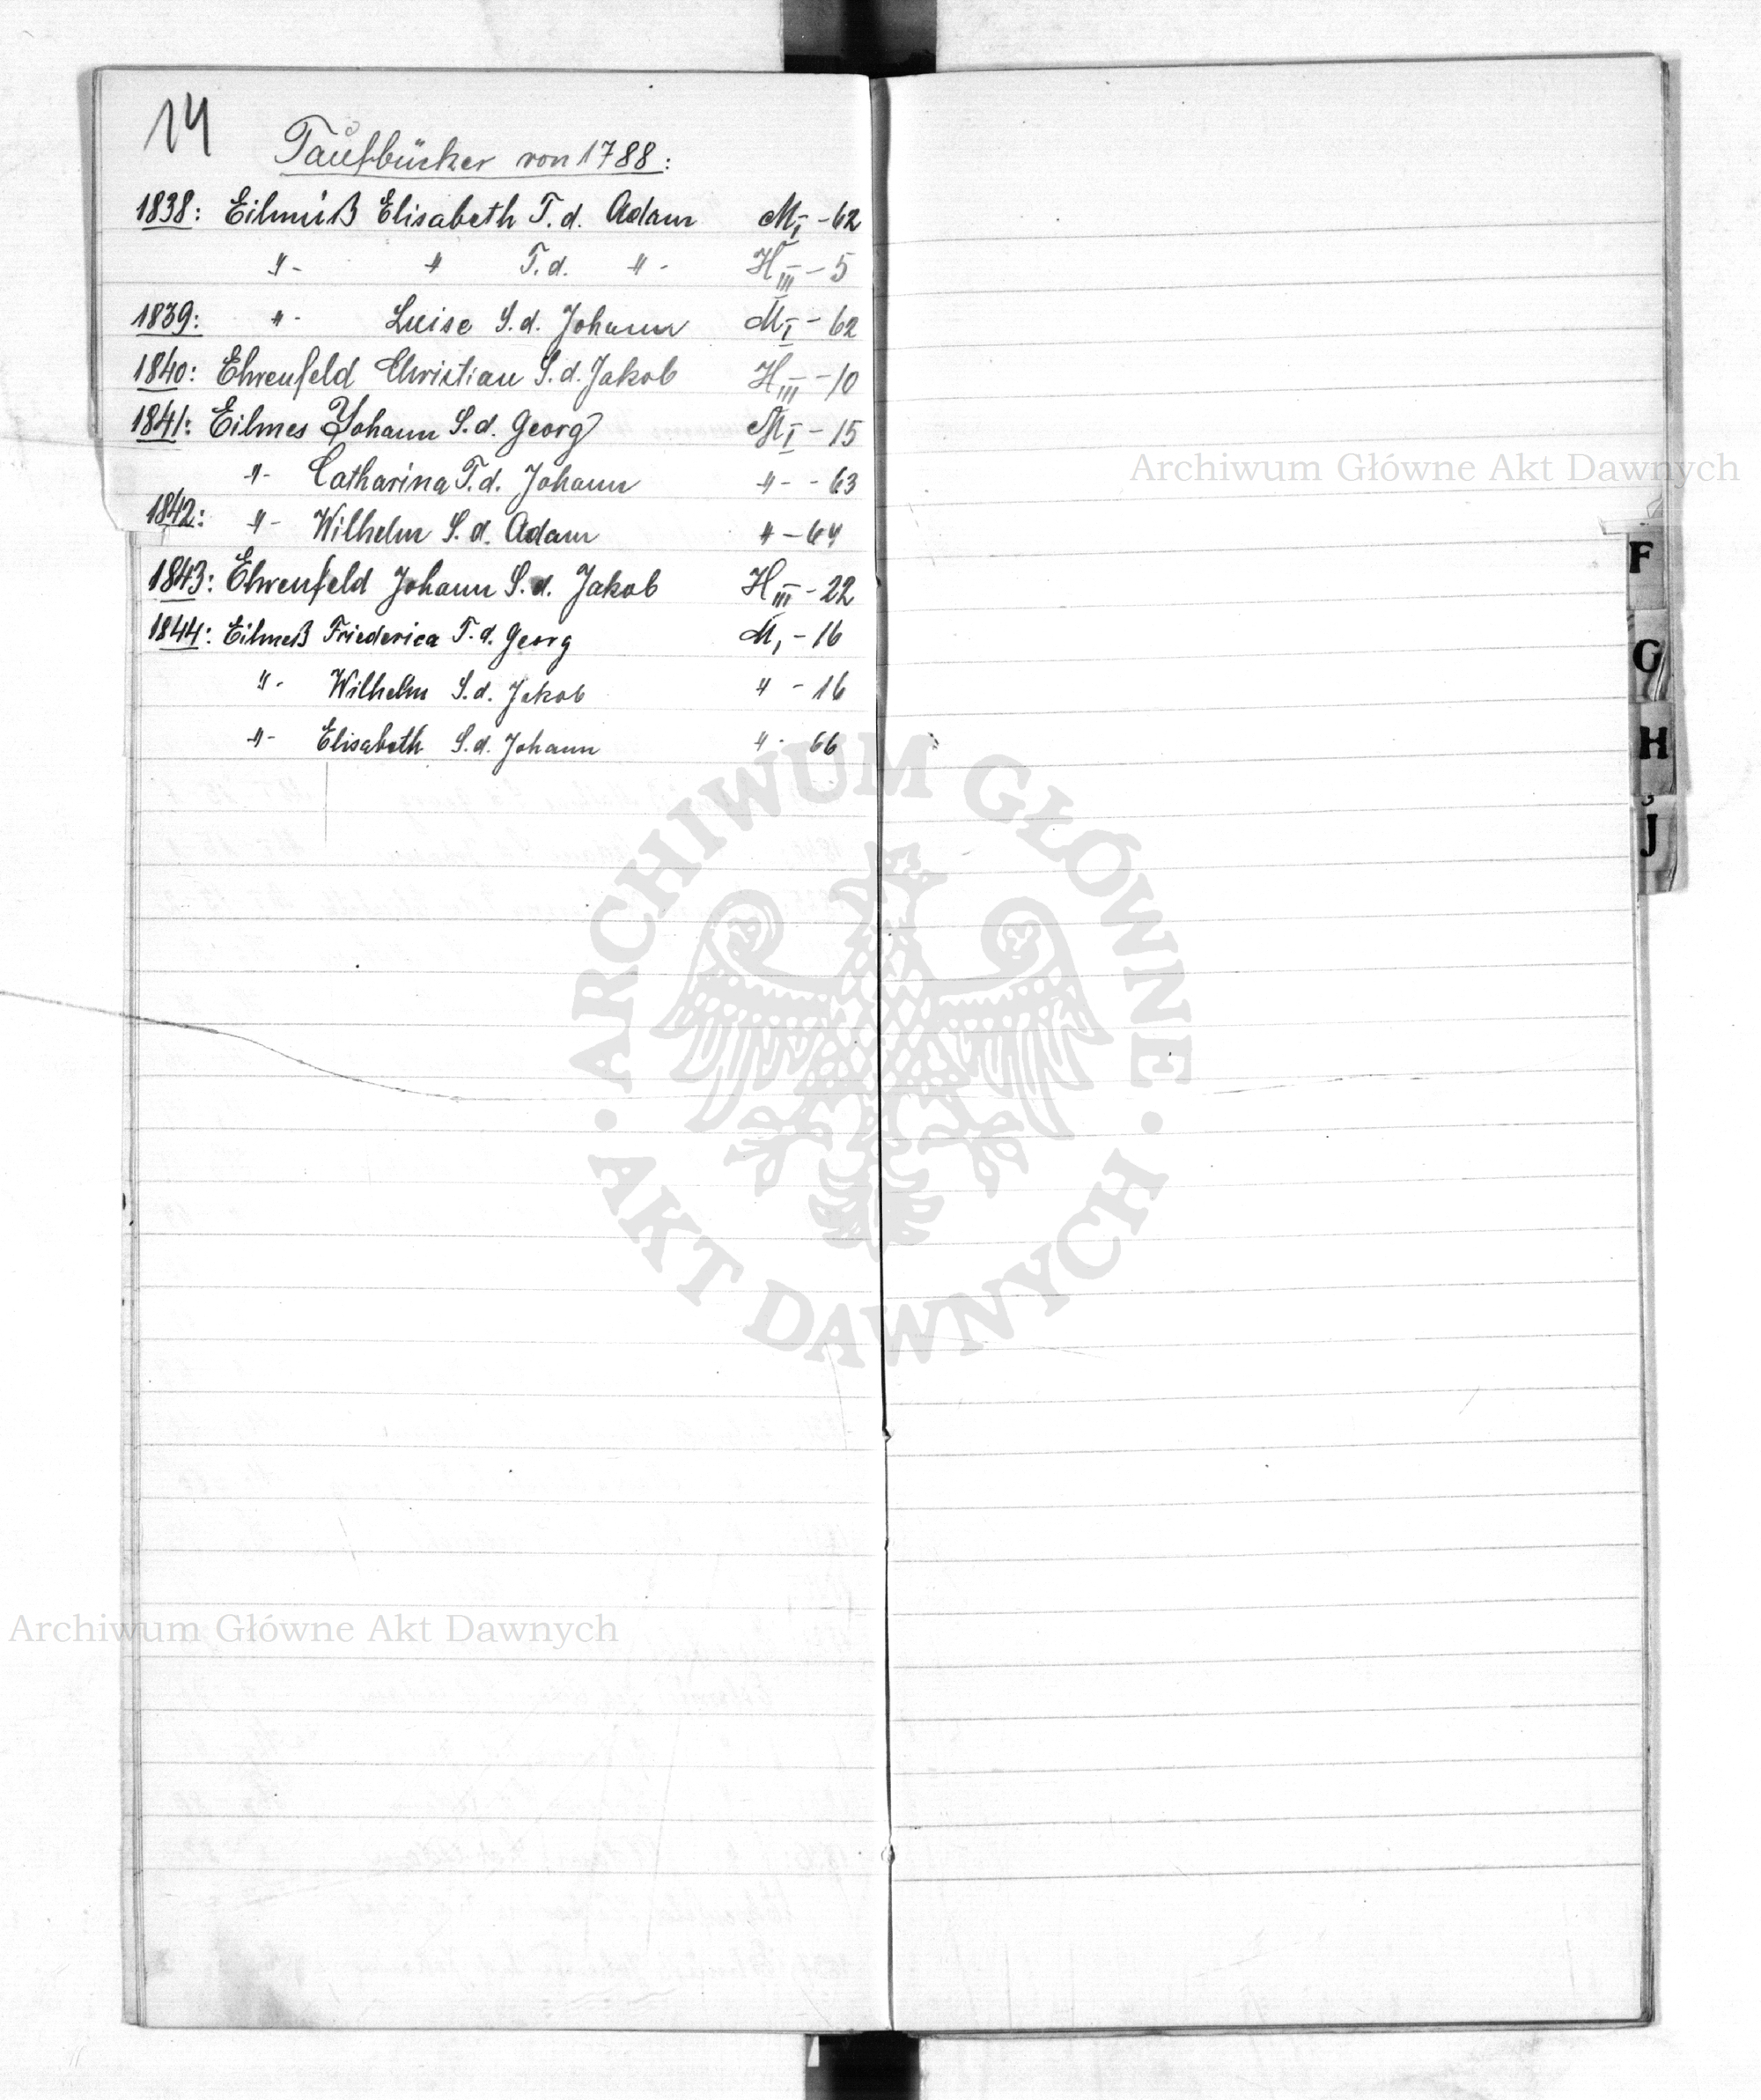 14
Taufbücher von 1788:
1838: Eilmiß Elisabeth T. d. Adam M I - 62
"- " T. d. "- H III - 5
1839: "- Luise T. d. Johann M I - 62
1840: Ehrenfeld Christian S. d. Jakob H III - 10
1841: Eilmes Johann S. d. Georg M I - 15
"- Catharina T. d. Johann "- - 63
1842: "- Wilhelm S. d. Adam " - 64
1843: Ehrenfeld Johann S. d. Jakob H III - 22
1844: Eilmeß Friederica T. d. Georg M I - 16
"- Wilhelm S. d. Jakob " - 16
"- Elisabeth S. d. Johann " - 66
F
G
H
J
Archiwum Główne Akt Dawnych
ARCHIWUM GŁÓWNE · AKT DAWNYCH ·
Archiwum Główne Akt Dawnych